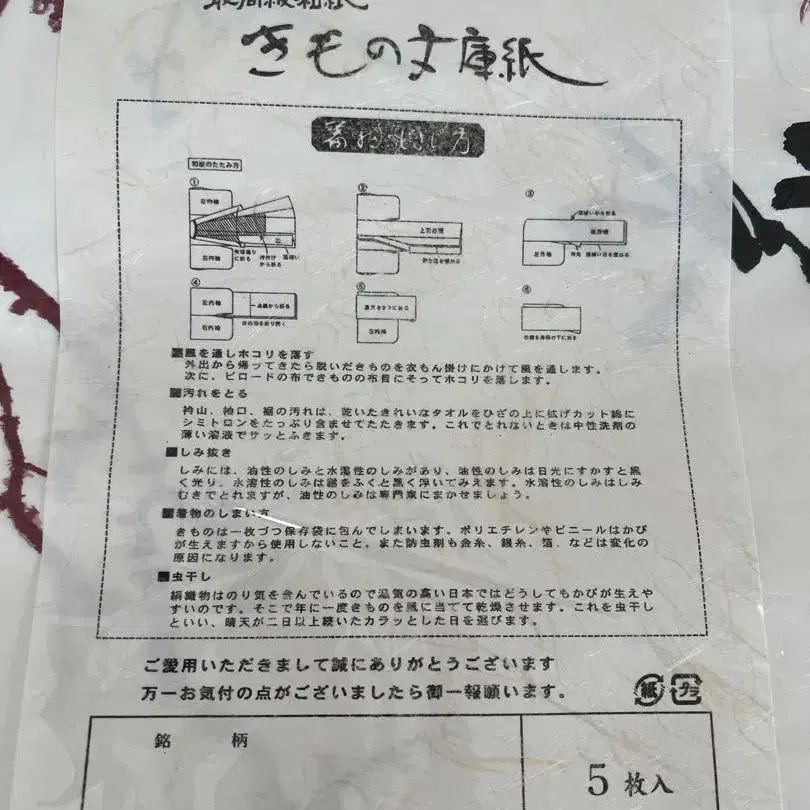 きもの文庫紙
和服のたたみ方
①
②
③
左内袖
右内袖
左外袖
④
⑤
⑥
左内袖
右内袖
左内袖
■風を通しホコリを落す
外出から帰ってきたら脱いだきものを衣もん掛けにかけて風を通します。
次に、ビロードの布できものの布目にそってホコリを落します。
■汚れをとる
衿山、袖口、裾の汚れは、乾いたきれいなタオルをひざの上に拡げカット綿に
シミトロンをたっぷり含ませてたたきます。これでとれないときは中性洗剤の
薄い溶液でサッとふきます。
■しみ抜き
しみには、油性のしみと水溶性のしみがあり、油性のしみは日光にすかすと黒
く光り、水溶性のしみは霧をふくと黒く浮いてみえます。水溶性のしみはしみ
むきでとれますが、油性のしみは専門家にまかせましょう。
■着物のしまい方
きものは一枚づつ保存袋に包んでしまいます。ポリエチレンやビニールはかび
が生えますから使用しないこと。また防虫剤も金糸、銀糸、箔、などは変化の
原因になります。
■虫干し
絹織物はのり気を含んでいるので湿気の高い日本ではどうしてもかびが生えや
すいのです。そこで年に一度きものを風に当てて乾燥させます。これを虫干し
といい、晴天が二日以上続いたカラッとした日を選びます。
ご愛用いただきまして誠にありがとうございます
万一お気付の点がございましたら御一報願います。
紙 プラ
銘 柄
5 枚入